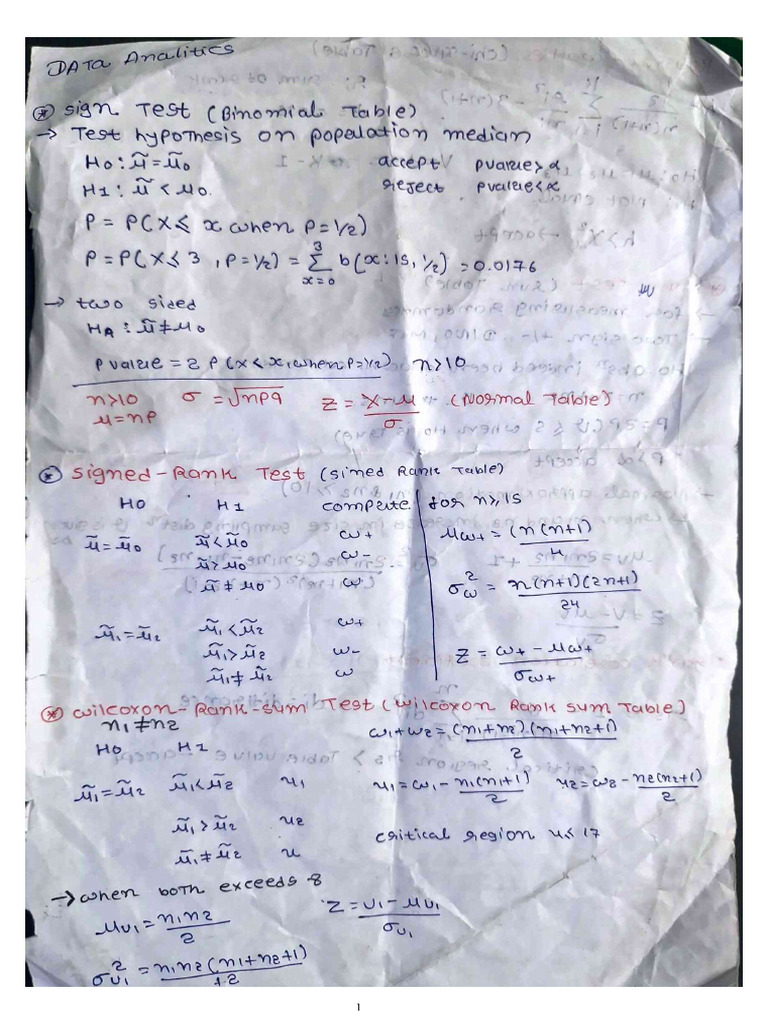 DATA Analitics
⊛ Sign Test (Binomial Table)
→ Test hypothesis on population median
H0 : μ̃ = μ̃0 accept pvalue > α
H1 : μ̃ < μ0. reject pvalue < α
P = P(X ≤ x when P = 1/2)
P = P(X ≤ 3, P = 1/2) = Σ_{x=0}^{3} b(x: 15, 1/2) = 0.0176
→ two sided
HA : μ̃ ≠ μ0
P value = 2 P(X < x, when P = 1/2) n > 10
n > 10 σ = √npq Z = (X - μ)/σ (Normal Table)
μ = np
⊛ Signed-Rank Test (Sined Rank Table)
H0 H1 compute for n ≥ 15
μ̃ = μ̃0 μ̃ < μ̃0 ω+ μω+ = (n(n+1)/4
μ̃ > μ0 ω-
μ̃ ≠ μ0 ω σ²ω = n(n+1)(2n+1)/24
μ̃1 = μ̃2 μ̃1 < μ̃2 ω+
μ̃1 > μ̃2 ω- Z = (ω+ - μω+)/σω+
μ̃1 ≠ μ̃2 ω
⊛ Wilcoxon-Rank-Sum Test (Wilcoxon Rank Sum Table)
n1 ≠ n2 ω1 + ω2 = (n1+n2)(n1+n2+1)/2
H0 H1
μ̃1 = μ̃2 μ̃1 < μ̃2 u1 u1 = ω1 - n1(n1+1)/2 u2 = ω2 - n2(n2+1)/2
μ̃1 > μ̃2 u2 critical region u ≤ 17
μ̃1 ≠ μ̃2 u
→ when both exceeds 8
μu1 = n1n2/2 Z = (U1 - μu1)/σu1
σ²u1 = n1n2(n1+n2+1)/12
1